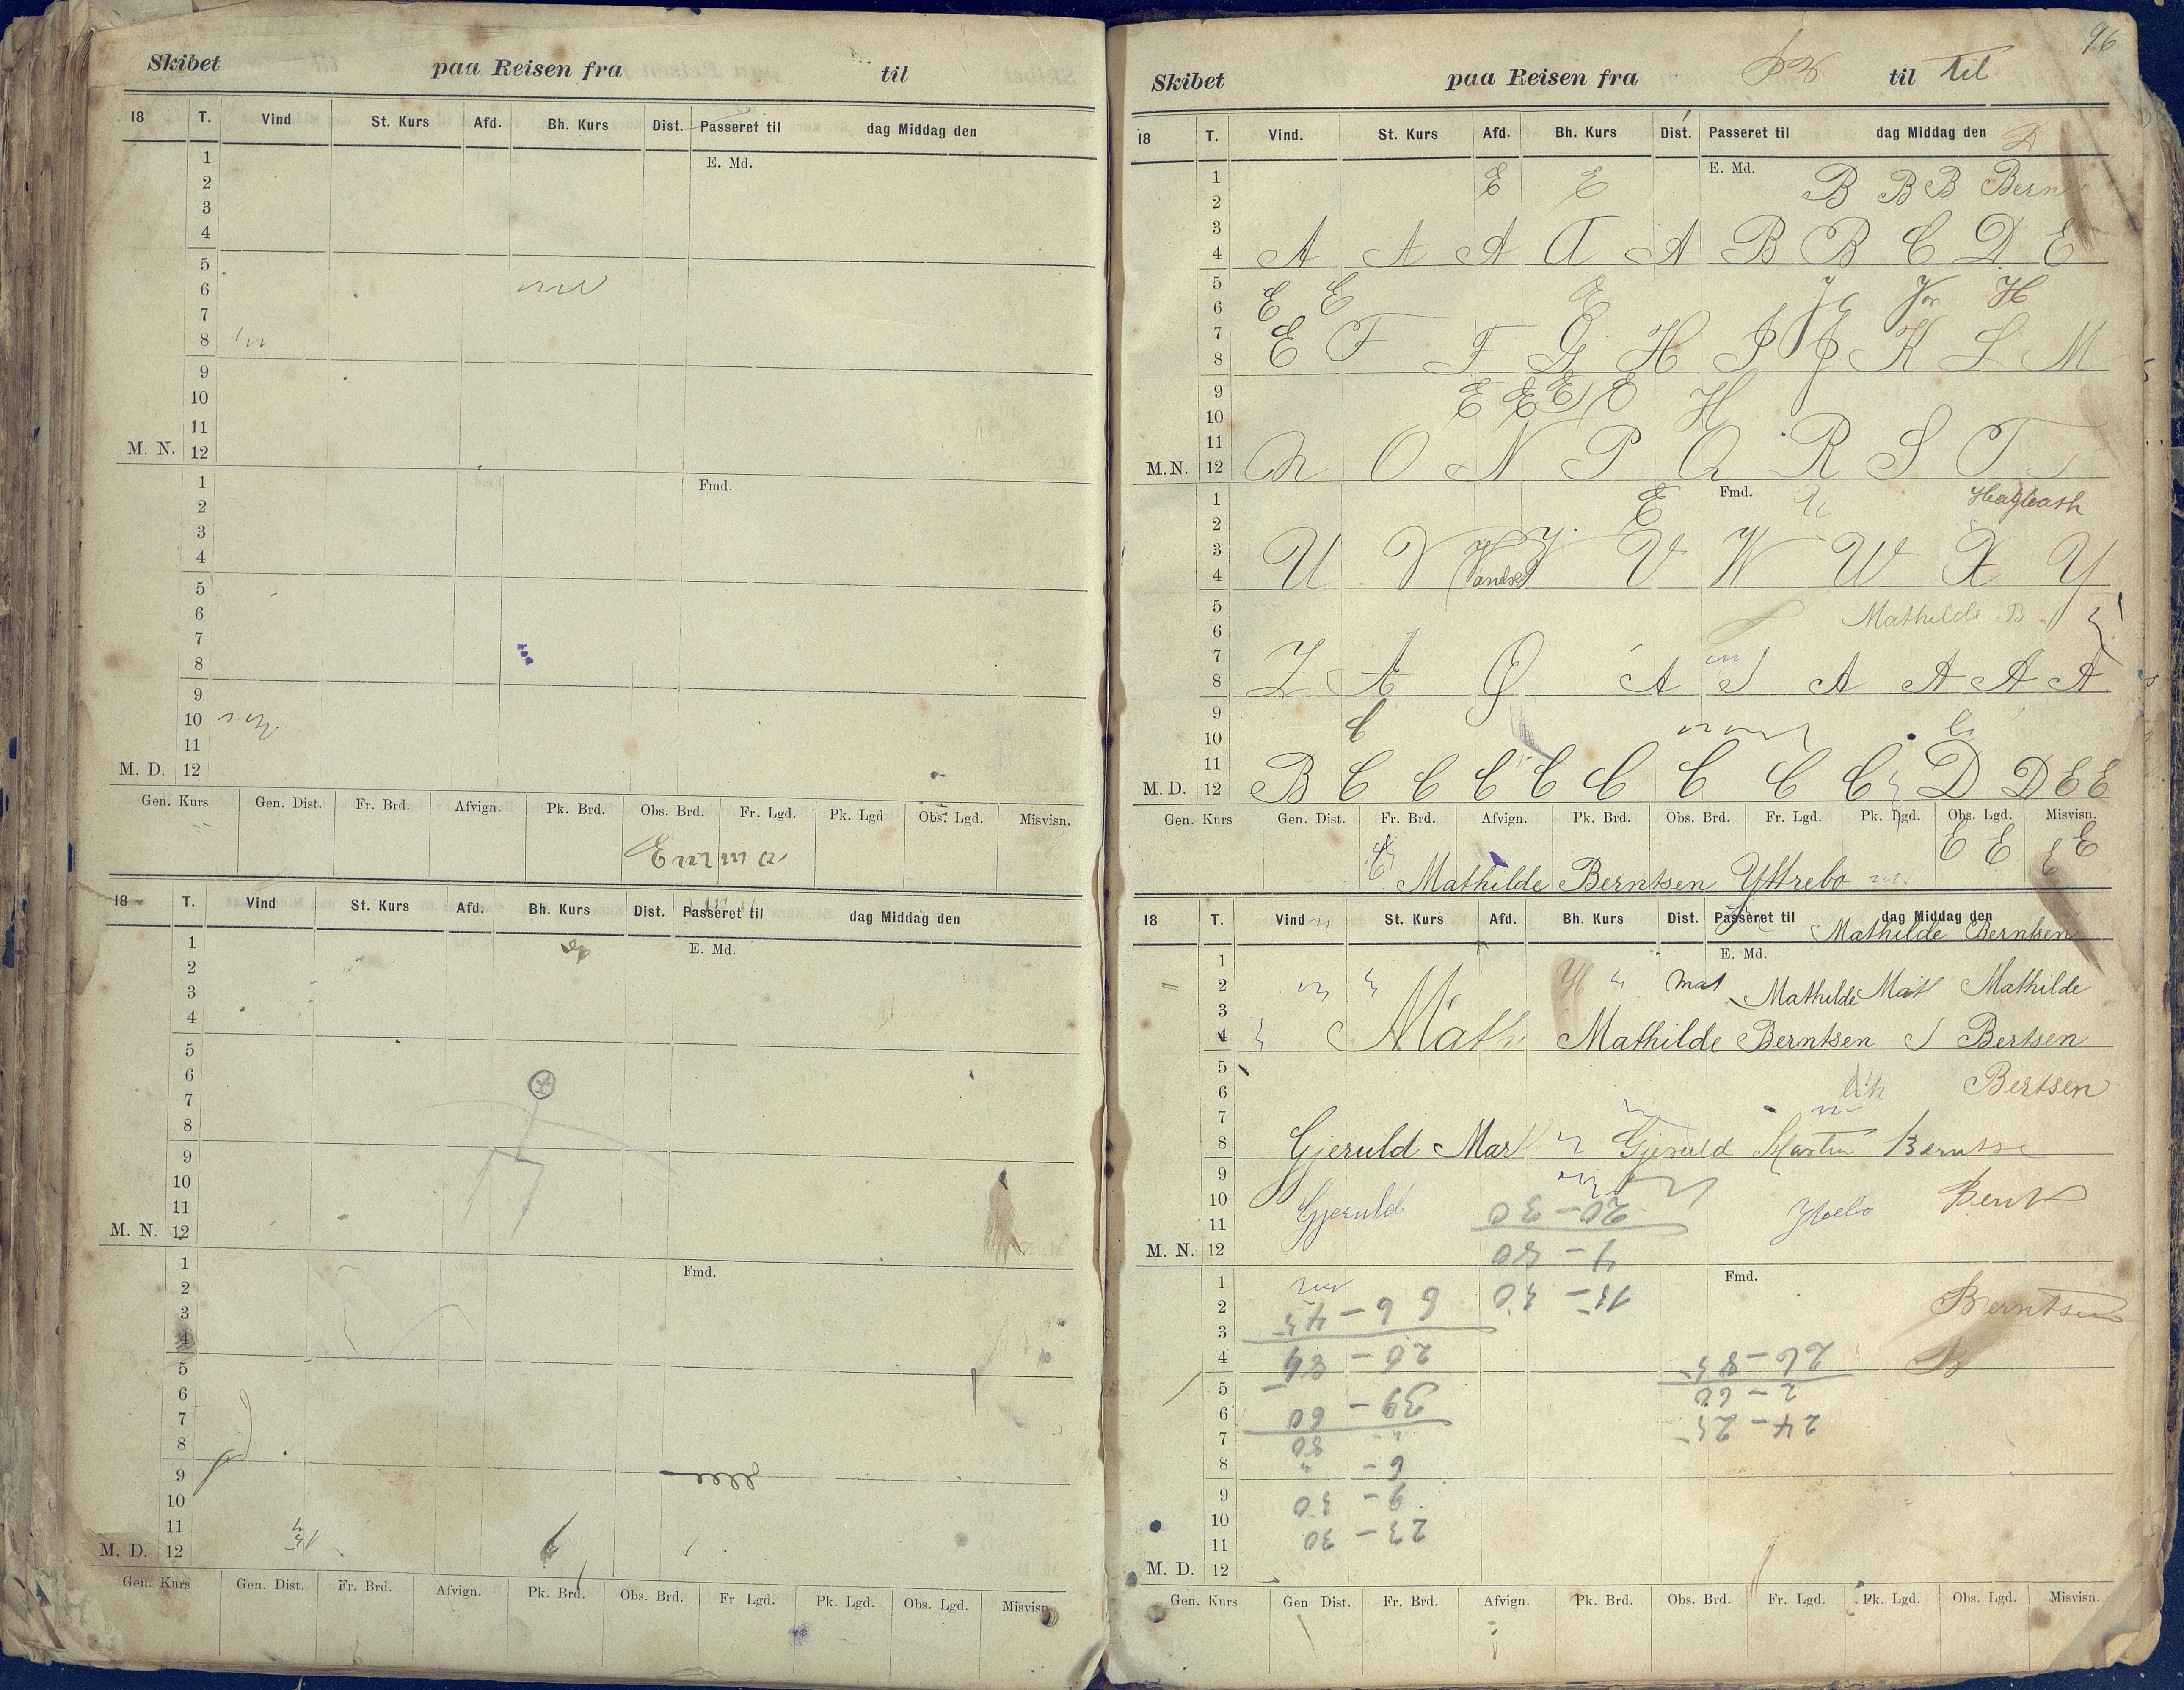 Skibet paa Reisen fra til
18 T. Vind St. Kurs Afd. Bh. Kurs Dist. Passeret til dag Middag den
1 E. Md.
2
3
4
5
6
7
8
9
10
11
M. N. 12
1 Fmd.
2
3
4
5
6
7
8
9
10
11
M. D. 12
Gen. Kurs Gen. Dist. Fr. Brd. Afvign. Pk. Brd. Obs. Brd. Fr. Lgd. Pk. Lgd Obs. Lgd. Misvisn.
Emma
18 T. Vind St. Kurs Afd. Bh. Kurs Dist. Passeret til dag Middag den
1 E. Md.
2
3
4
5
6
7
8
9
10
11
M. N. 12
1 Fmd.
2
3
4
5
6
7
8
9
10
11
M. D. 12
Gen. Kurs Gen. Dist. Fr. Brd. Afvign. Pk. Brd. Obs. Brd. Fr Lgd. Pk. Lgd. Obs. Lgd. Misvisn.
96
Skibet paa Reisen fra til til
18 T. Vind. St. Kurs Afd. Bh. Kurs Dist. Passeret til dag Middag den
1 E E E. Md. B B B Bern
2
3
4 A A A A A B B C D E
5 E E E H
6
7
8 E F F G H I J K L M
9 E E E E H
10
11
M.N. 12 M O N P Q R S T
1 E Fmd.
2
3
4 U V V V W W X Y
5 Mathilde B
6
7
8 Z Æ Ø A A A A A
9 C
10
11
M. D. 12 B C C C C C C C C D D E E
Gen. Kurs Gen. Dist. Fr. Brd. Afvign. Pk. Brd. Obs. Brd. Fr. Lgd. Pk. Lgd. Obs. Lgd. Misvisn.
E E E E
Mathilde Berntsen Yttrebo
18 T. Vind St. Kurs Afd. Bh. Kurs Dist. Passeret til dag Middag den
Mathilde Berntsen
1 E. Md.
2 Mat Mathilde Mat Mathilde
3
4 Math Mathilde Berntsen Bertsen
5
6 Bertsen
7
8 Gjeruld Mar Gjeruld Martin Berntse
9
10 Gjeruld 20-30 Bent
11
M. N. 12
1 Fmd.
2 Berntsen
3
4 B
5
6 39-60
7
8
9 9-30
10
11 23-30
M. D. 12
Gen. Kurs Gen Dist. Fr. Brd. Afvign. Pk. Brd. Obs. Brd. Fr. Lgd. Pk. Lgd. Obs. Lgd. Misvisn.